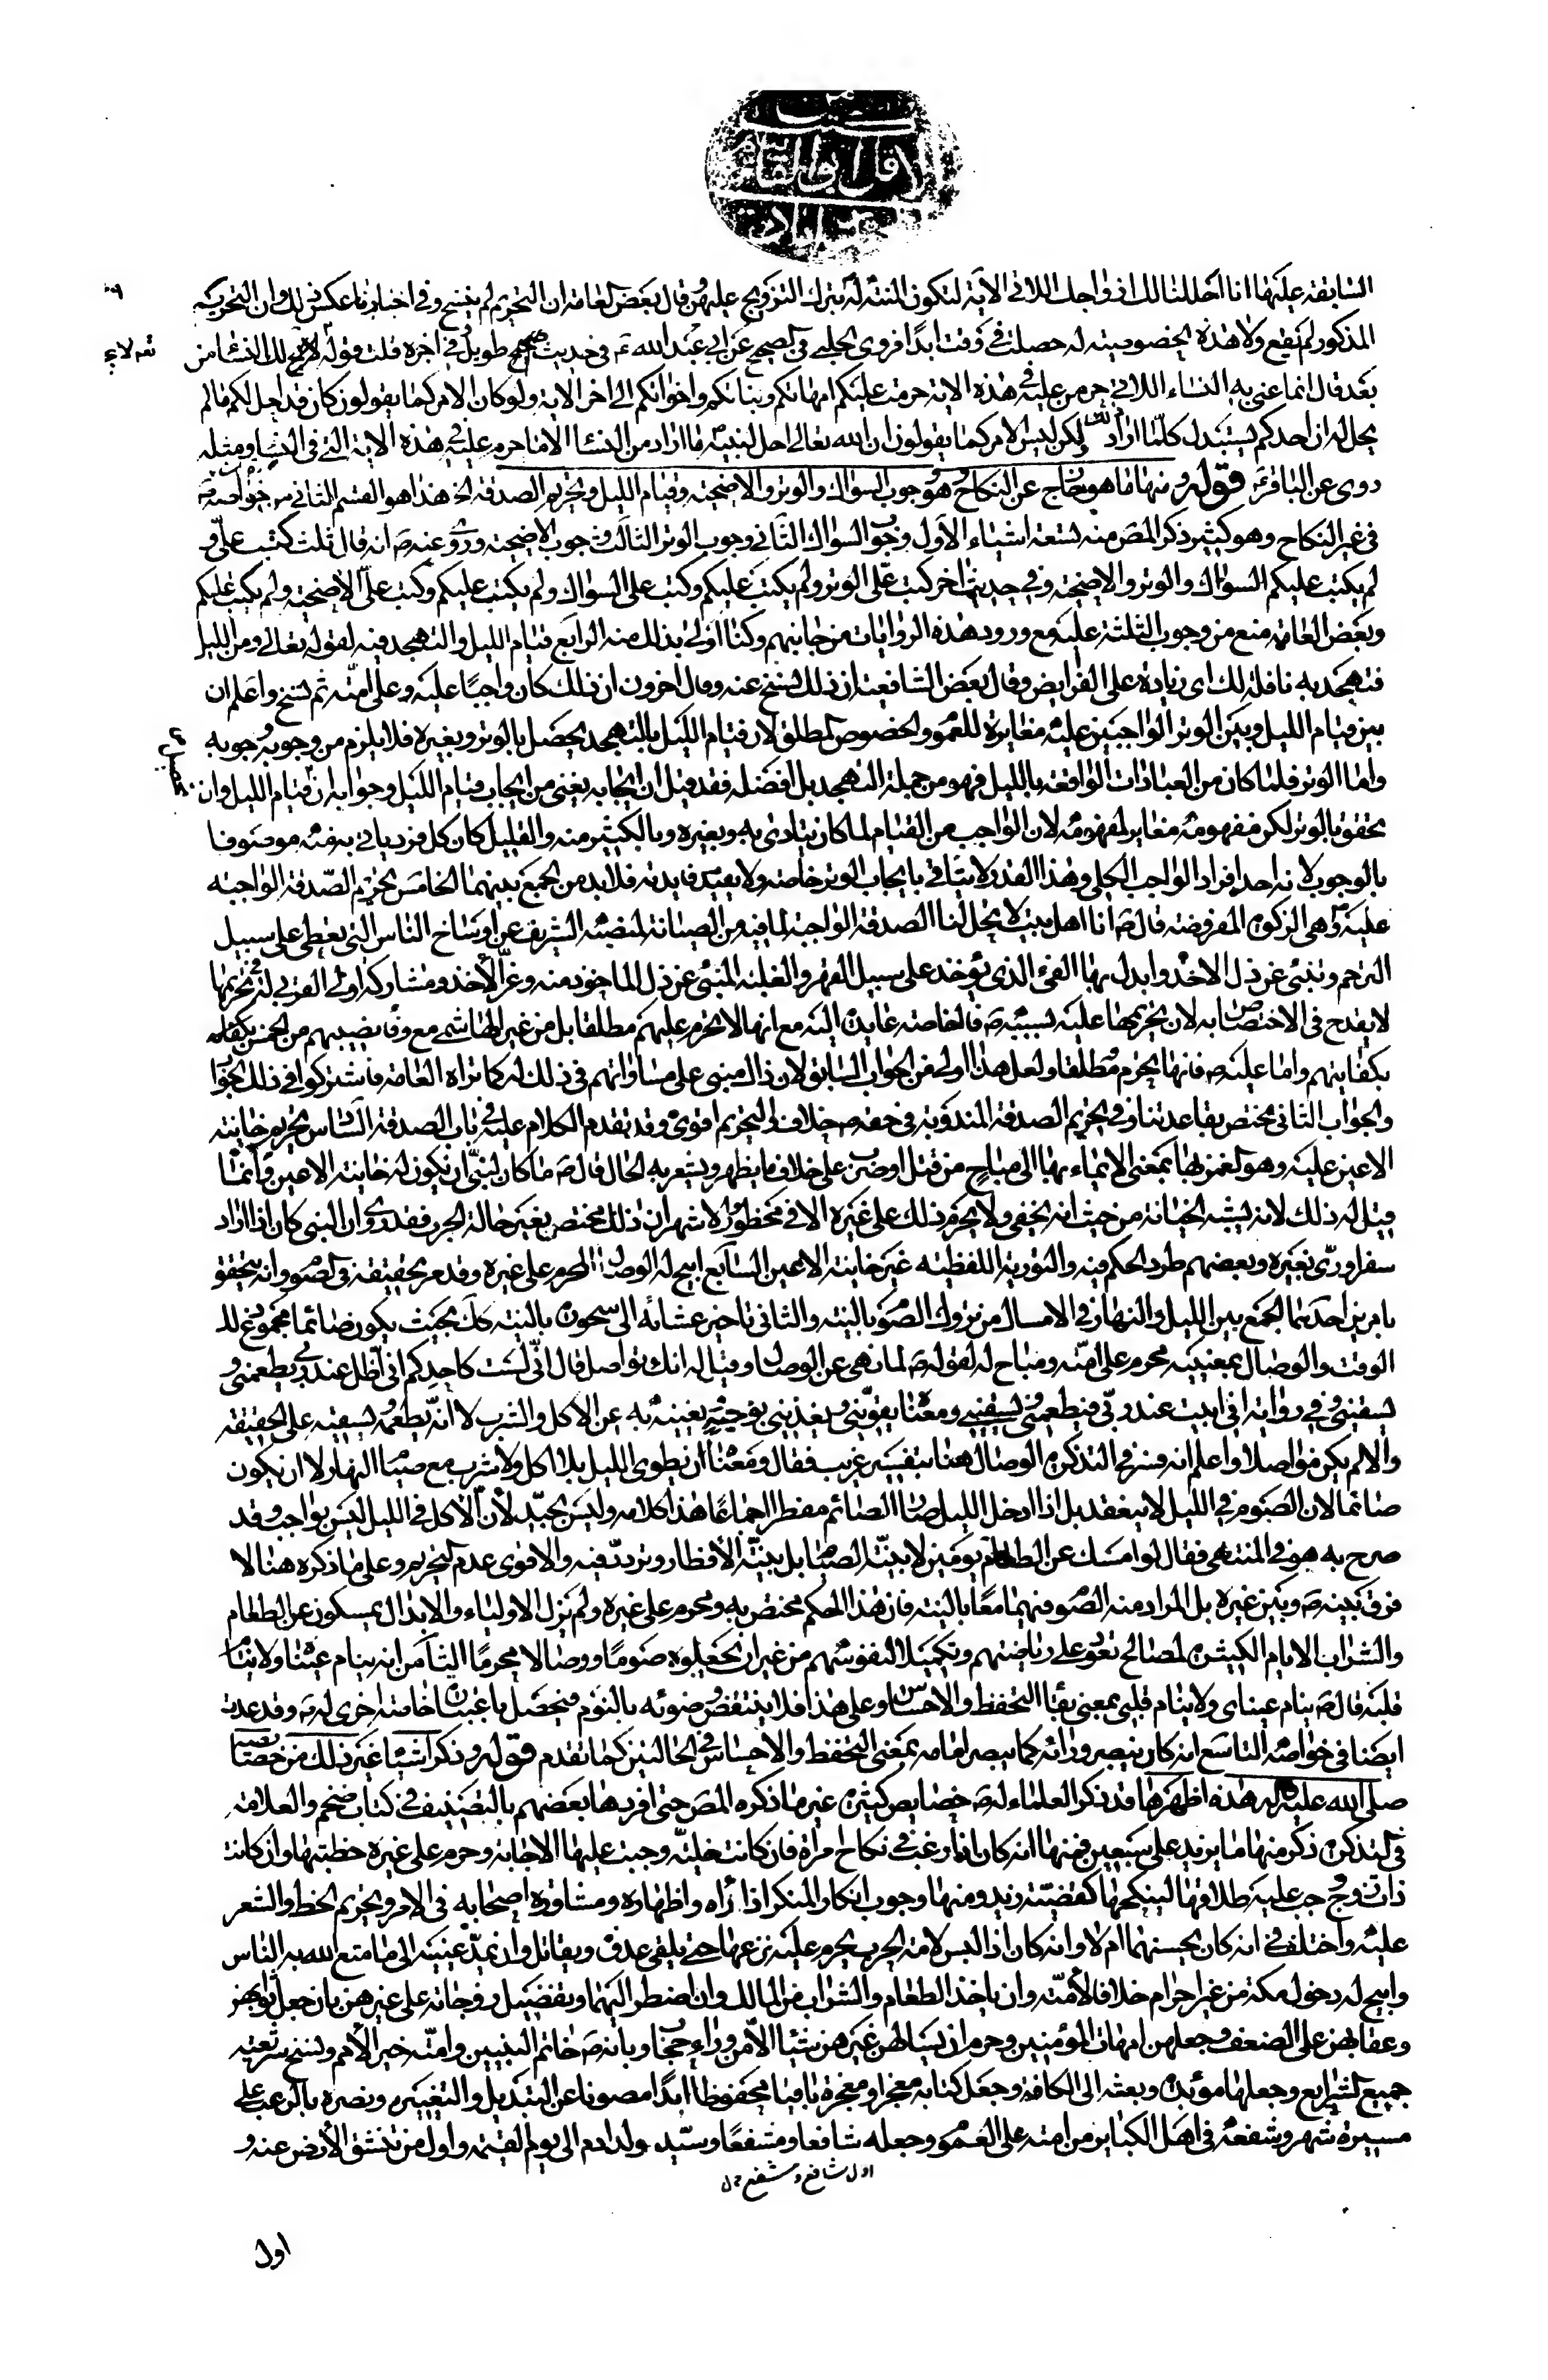 السابقة عليها انا احللنا لك ازواجك اللاتى الآية لتكون المنة له بترك التزويج عليهن وقال بعض العامة ان التحريم لم ينسخ وفى اخبارنا عكس ذلك وان التحريم
المذكور لم يقع ولا هذه الخصوصية له حصلت فى وقت ابدا فروى الحلبى فى الصحيح عن ابى عبد الله ع فى حديث طويل فى اخره قلت قوله لا يحل لك النساء من
بعد قال انما عنى به النساء اللاتى حرم عليه فى هذه الاية حرمت عليكم امهاتكم وبناتكم واخواتكم الى اخر الاية ولو كان الامر كما يقولون كان قد احل لكم ما لم
يحل له ان احدكم يستبدل كلما اراد ولكن ليس الامر كما يقولون ان الله تعالى احل لنبيه ما اراد من النساء الا ما حرم عليه فى هذه الاية التى فى النساء ومثله
روى عن الباقر ع قوله ومنها ما هو خارج عن النكاح وهو وجوب السواك والوتر والاضحية وقيام الليل وتحريم الصدقة الخ هذا هو القسم الثانى من خواصه ص
فى غير النكاح وهو كثير ذكر المص منه تسعة اشياء الاول وجوب السواك الثانى وجوب الوتر الثالث وجوب الاضحية وروى عنه ص انه قال ثلث كتبت على و
لم يكتب عليكم السواك والوتر والاضحية وفى حديث اخر كتب على الوتر ولم يكتب عليكم وكتب على السواك ولم يكتب عليكم وكتب على الاضحية ولم يكتب عليكم
وبعض العامة منع من وجوب الثلثة عليه مع ورود هذه الروايات من جانبهم وكنا اولى بذلك منه الرابع قيام الليل والتهجد فيه لقوله تعالى ومن الليل
فتهجد به نافلة لك اى زيادة على الفرايض وقال بعض الشافعية ان ذلك نسخ عنه وقال اخرون ان ذلك كان واجبا عليه وعلى امته ثم نسخ واعلم ان
بين قيام الليل وبين الوتر الواجبين عليه مغايرة للعموم والخصوص المطلق لان قيام الليل بالتهجد يحصل بالوتر وبغيره فلا يلزم من وجوبه وجوبه
واما الوتر فلما كان من العبادات الواقعة بالليل فهو من جملة التهجد بل افضله فقد قيل ان ايجابه يغنى من ايجاب قيام الليل وجوابه ان قيام الليل وان
تحقق بالوتر لكن مفهومه مغاير لمفهومه لان الواجب من القيام لما كان يتادى به وبغيره وبالكثير منه والقليل كان كل فرد ياتى به منه موصوفا
بالوجوب لانه احد افراد الواجب الكلى وهذا القدر لا يتاتى بايجاب الوتر خاصة ولا يفيد فايدته فلا بد من الجمع بينهما الخامس تحريم الصدقة الواجبة
عليه وهى الزكوة المفروضة قال ص انا اهل بيت لا تحل لنا الصدقة الواجبة لما فيه من الصيانة لمنصبه الشريف عن اوساخ الناس التى تعطى على سبيل
الترحم وتنبئ عن ذل الاخذ وابدل بها الفئ الذى يؤخذ على سبيل القهر والغلبة المنبئ عن ذل الماخوذ منه وعز الأخذ ومشاركة اولى القربى له فى تحريمها
لا يقدح فى الاختصاص به لان تحريمها عليهم بسببه ص فالخاصة عايدة اليه مع انها لا تحرم عليهم مطلقا بل من غير الهاشمى مع وفا نصيبهم من الخمس
بكفايتهم واما عليه ص فانها تحرم مطلقا ولعل هذا اولى من الجواب السابق لان ذاك مبنى على مساواتهم فى ذلك له كما تراه العامة فاشتركوا فى ذلك الجواب
والجواب الثانى مختص بقاعدتنا وفى تحريم الصدقة المندوبة فى حقه ص خلاف والتحريم اقوى وقد تقدم الكلام عليه فى باب الصدقة السادس تحريم خاينة
الاعين عليه وهو الغمز بها بمعنى الايماء بها الى مباح من قتل او ضرب على خلاف ما يظهر ويشعر به الحال قال ص ما كان لنبى ان يكون له خاينة الاعين وانما
قيل له ذلك لانه يشبه الخيانة من حيث انه يخفى ولا يحرم ذلك على غيره الا فى محظور والاشهر ان ذلك مختص بغير حالة الحرب فقد روى ان النبى كان اذا اراد
سفرا ورى بغيره وبعضهم طرد الحكم فيه والتورية اللفظية غير خاينة الاعين السابع ابيح له الوصال المحرم على غيره وقد مر تحقيقه فى الصوم وانه يتحقق
بامرين احدهما الجمع بين الليل والنهار فى الامساك من تروك الصوم بالنية والثانى تاخير عشائه الى سحوره بالنية كذلك بحيث يكون صائما مجموع ذلك
الوقت والوصال بمعنييه محرم على امته ومباح له لقوله ص لما نهى عن الوصال وقيل له انك تواصل قال انى لست كاحدكم انى اظل عند ربى يطعمنى و
يسقينى وفى رواية انى ابيت عند ربى فيطعمنى ويسقينى ومعناه يقوينى ويغذينى بوحيه يغنيه به عن الاكل والشرب لا انه يطعمه ويسقيه على الحقيقة
والا لم يكن مواصلا واعلم انه فسر فى التذكرة الوصال هنا بتفسير غريب فقال ومعناه ان يطوى الليل بلا اكل ولا شرب مع صيام النهار لا ان يكون
صائما لان الصوم فى الليل لا ينعقد بل اذا دخل الليل صار الصائم مفطرا اجماعا هذا كلامه وليس بجيد لأن الأكل فى الليل ليس بواجب وقد
صرح به هو فى المنتهى فقال لو امسك عن الطعام يومين لا بنية الصيام بل بنية الأفطار وتردد فيه والاقوى عدم التحريم وعلى ما ذكره هنا لا
فرق بينه ص وبين غيره بل المراد منه الصوم فيهما معا بالنية فان هذا الحكم مختص به ومحرم على غيره ولم يزل الاولياء والابدال يمسكون عن الطعام
والشراب الايام الكثيرة لمصالح تعود على رياضتهم وتكميلا لنفوسهم من غير ان يجعلوه صوما ووصالا محرما الثامن انه ينام عيناه ولا ينام
قلبه قال ص ينام عيناى ولا ينام قلبى بمعنى بقاء التحفظ والاحساس وعلى هذا فلا ينتقض وضوئه بالنوم فيحصل باعتباره خاصة اخرى له ص وقد عدت
ايضا فى خواصه التاسع انه كان يبصر ورائه كما يبصر امامه بمعنى التحفظ والاحساس فى الحالتين كما تقدم قوله وذكر اشياء غير ذلك من خصايصه
صلى الله عليه واله هذه اظهرها قد ذكر العلماء له ص خصايص كثيرة غير ما ذكره المص حتى افردها بعضهم بالتصنيف فى كتاب ضخم والعلامة
فى التذكرة ذكر منها ما يزيد على سبعين فمنها انه كان اذا رغب فى نكاح امراة فان كانت خلية وجبت عليها الاجابة وحرم على غيره خطبتها وان كانت
ذات زوج وجب عليه طلاقها لينكحها كقضية زيد ومنها وجوب انكار المنكر اذا رآه واظهاره ومشاورة اصحابه فى الامر وتحريم الخط والشعر
عليه واختلف فى انه كان يحسنهما ام لا وانه كان اذا لبس لامة الحرب يحرم عليه نزعها حتى يلقى عدوه ويقاتل وان يمد عينيه الى ما متع الله به الناس
وابيح له دخول مكة من غير احرام خلافا لأمته وان ياخذ الطعام والشراب من المالك وان اضطر اليهما وتفضيل زوجاته على غيرهن بان جعل ثوابهن
وعقابهن على الضعف وجعلهن امهات المؤمنين وحرم ان يسالهن غيرهن شيئا الا من وراء حجاب وبانه ص خاتم النبيين وامته خير الأمم ونسخ بشريعته
جميع الشرايع وجعلها مؤبدة وبعثه الى الكافة وجعل كتابه معجزا ومعجزة باقيا محفوظا ابدا مصونا عن التبديل والتغيير ونصره بالرعب على
مسيرة شهر وشفعه فى اهل الكباير من امته على العموم وجعله شافعا ومشفعا وسيد ولد ادم الى يوم القيمة واول من تنشق الأرض عنه و
اول شافع ومشفع
اول